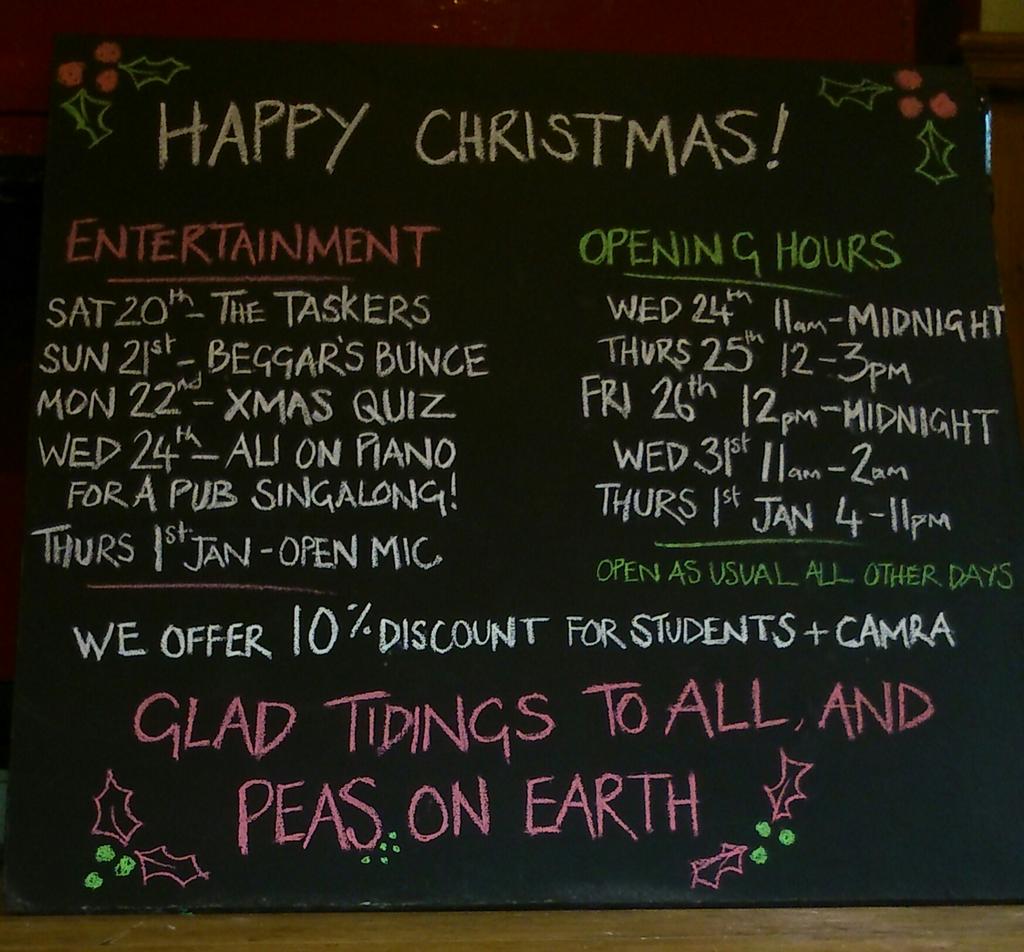 HAPPY CHRISTMAS!
ENTERTAINMENT
SAT 20th - THE TASKERS
SUN 21st - BEGGAR'S BUNCE
MON 22nd - XMAS QUIZ
WED 24th - ALI ON PIANO
FOR A PUB SINGALONG!
THURS 1st JAN - OPEN MIC
OPENING HOURS
WED 24th 11am - MIDNIGHT
THURS 25th 12 - 3pm
FRI 26th 12pm - MIDNIGHT
WED 31st 11am - 2am
THURS 1st JAN 4 - 11pm
OPEN AS USUAL ALL OTHER DAYS
WE OFFER 10% DISCOUNT FOR STUDENTS + CAMRA
GLAD TIDINGS TO ALL, AND
PEAS ON EARTH